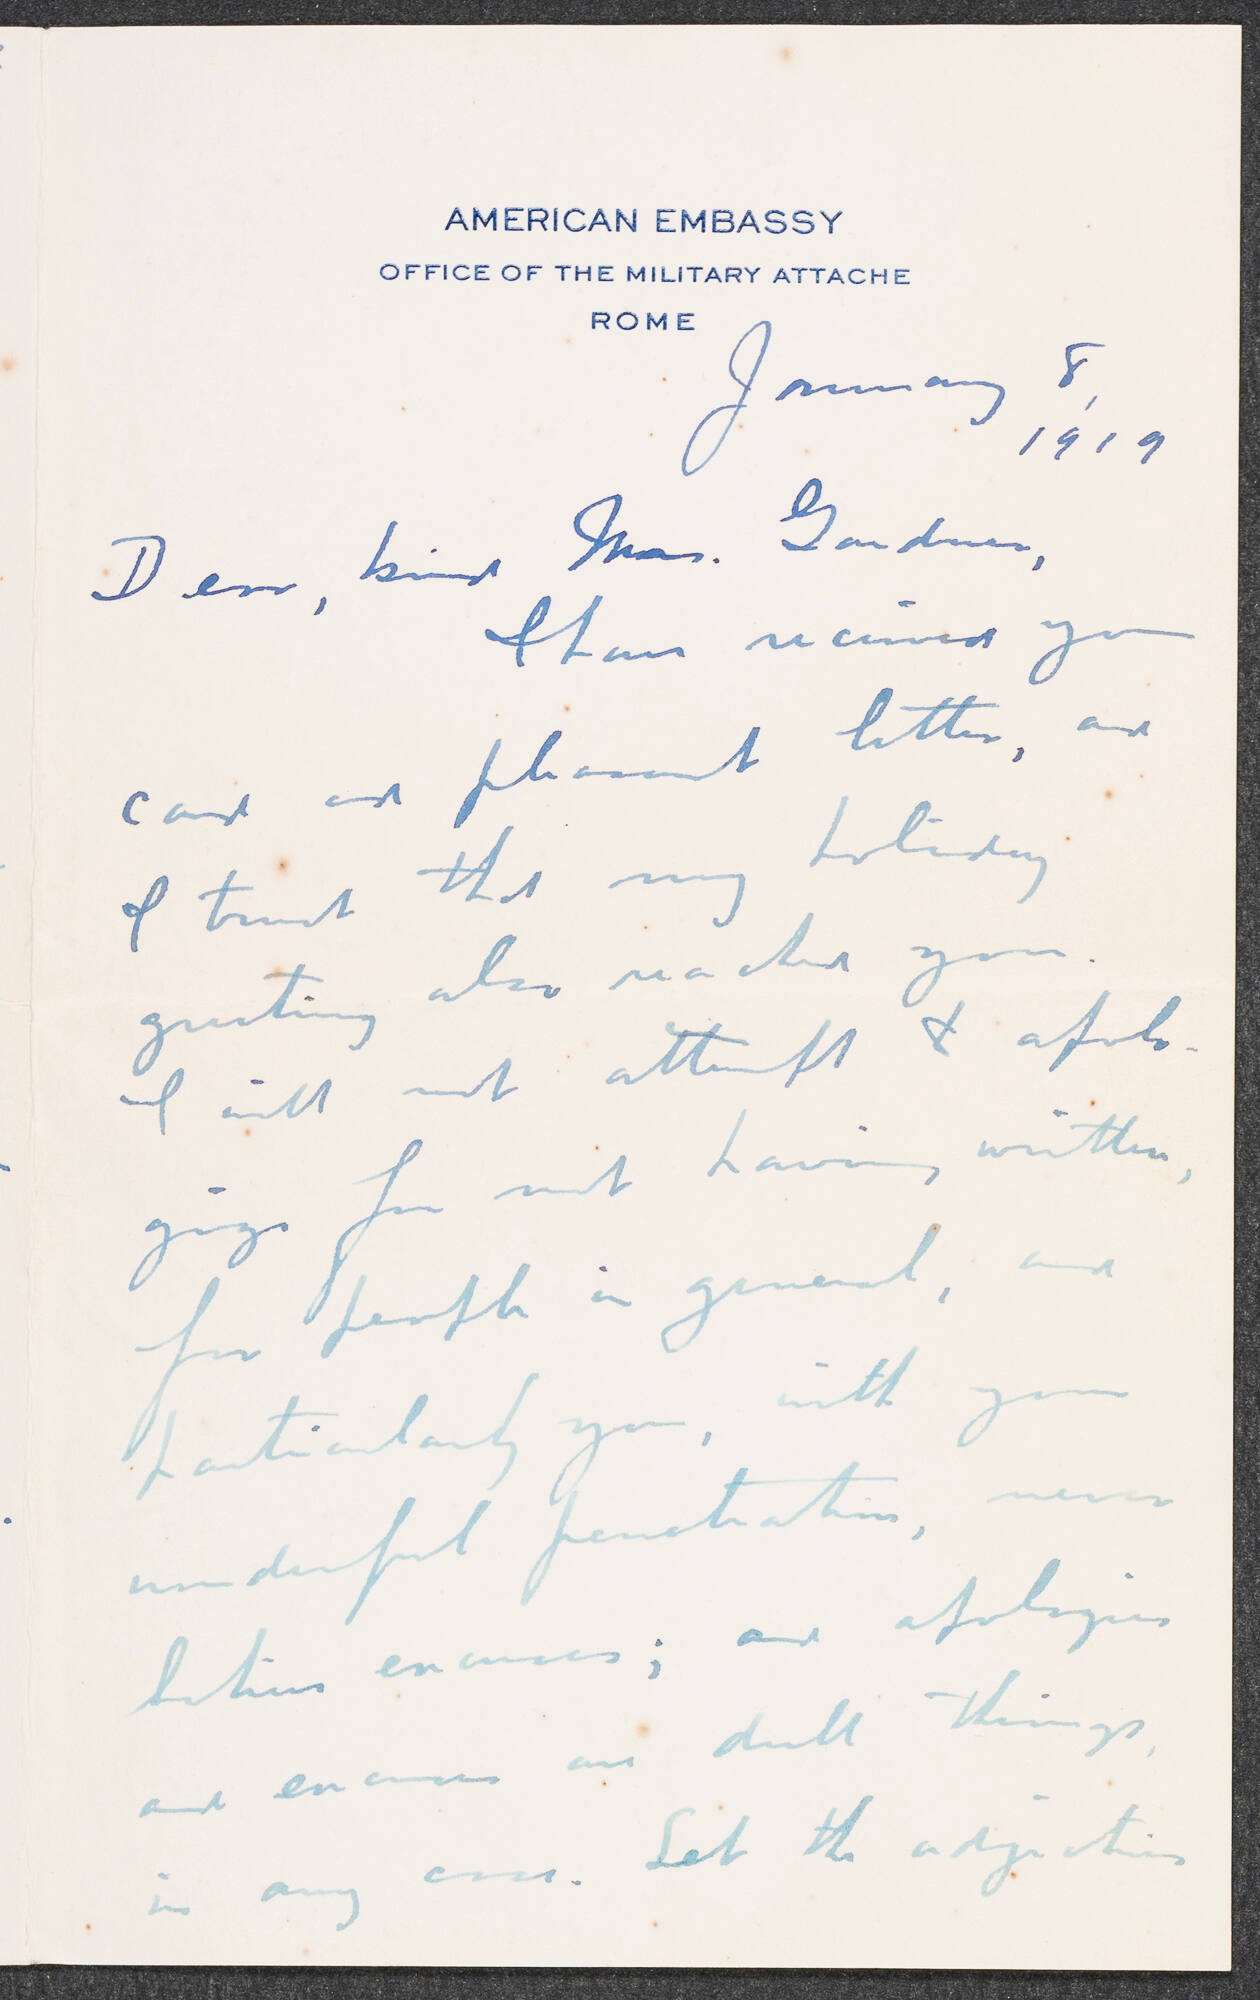 AMERICAN EMBASSY
OFFICE OF THE MILITARY ATTACHE
ROME
January 8,
1919
Dear, kind Mrs. Gardner,
I have received your
card and pleasant letter, and
I trust that my holiday
greeting also reached you.
I will not attempt to apolo-
gize for not having written,
for people in general, and
particularly you, with your
wonderful penetration, never
believe excuses; and apologies
and excuses are dull things,
in any case. Let the adjectives